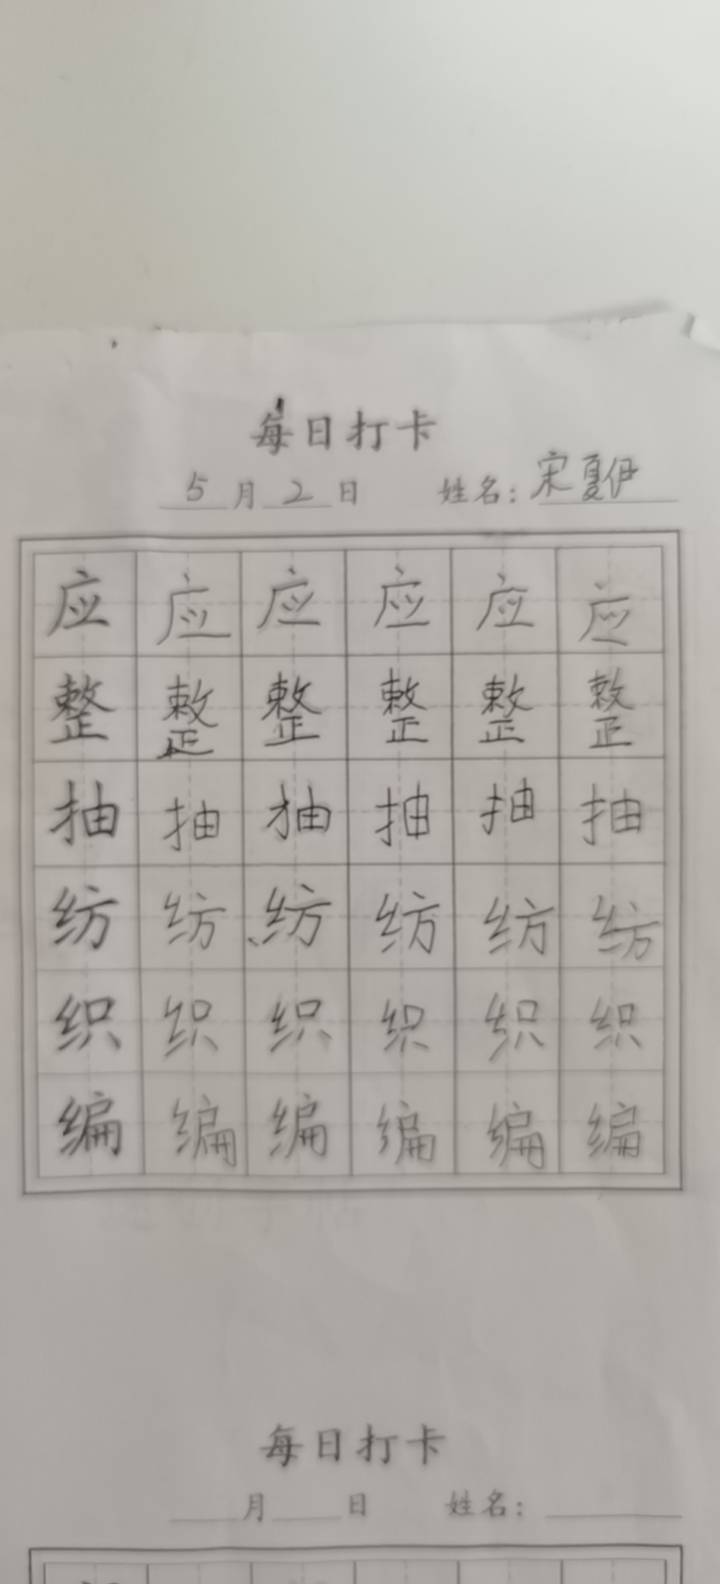 每日打卡
5月2日 姓名：宋夏伊
应应应应应应
整整整整整整
抽抽抽抽抽抽
纺纺纺纺纺纺
织织织织织织
编编编编编编
每日打卡
月 日 姓名：